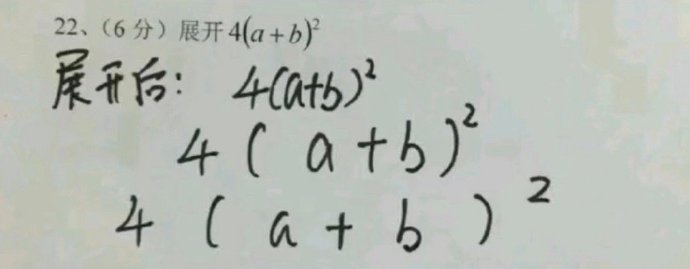 22、（6 分）展开 4(a+b)²
展开后： 4(a+b)²
4 ( a + b )²
4 ( a + b ) ²